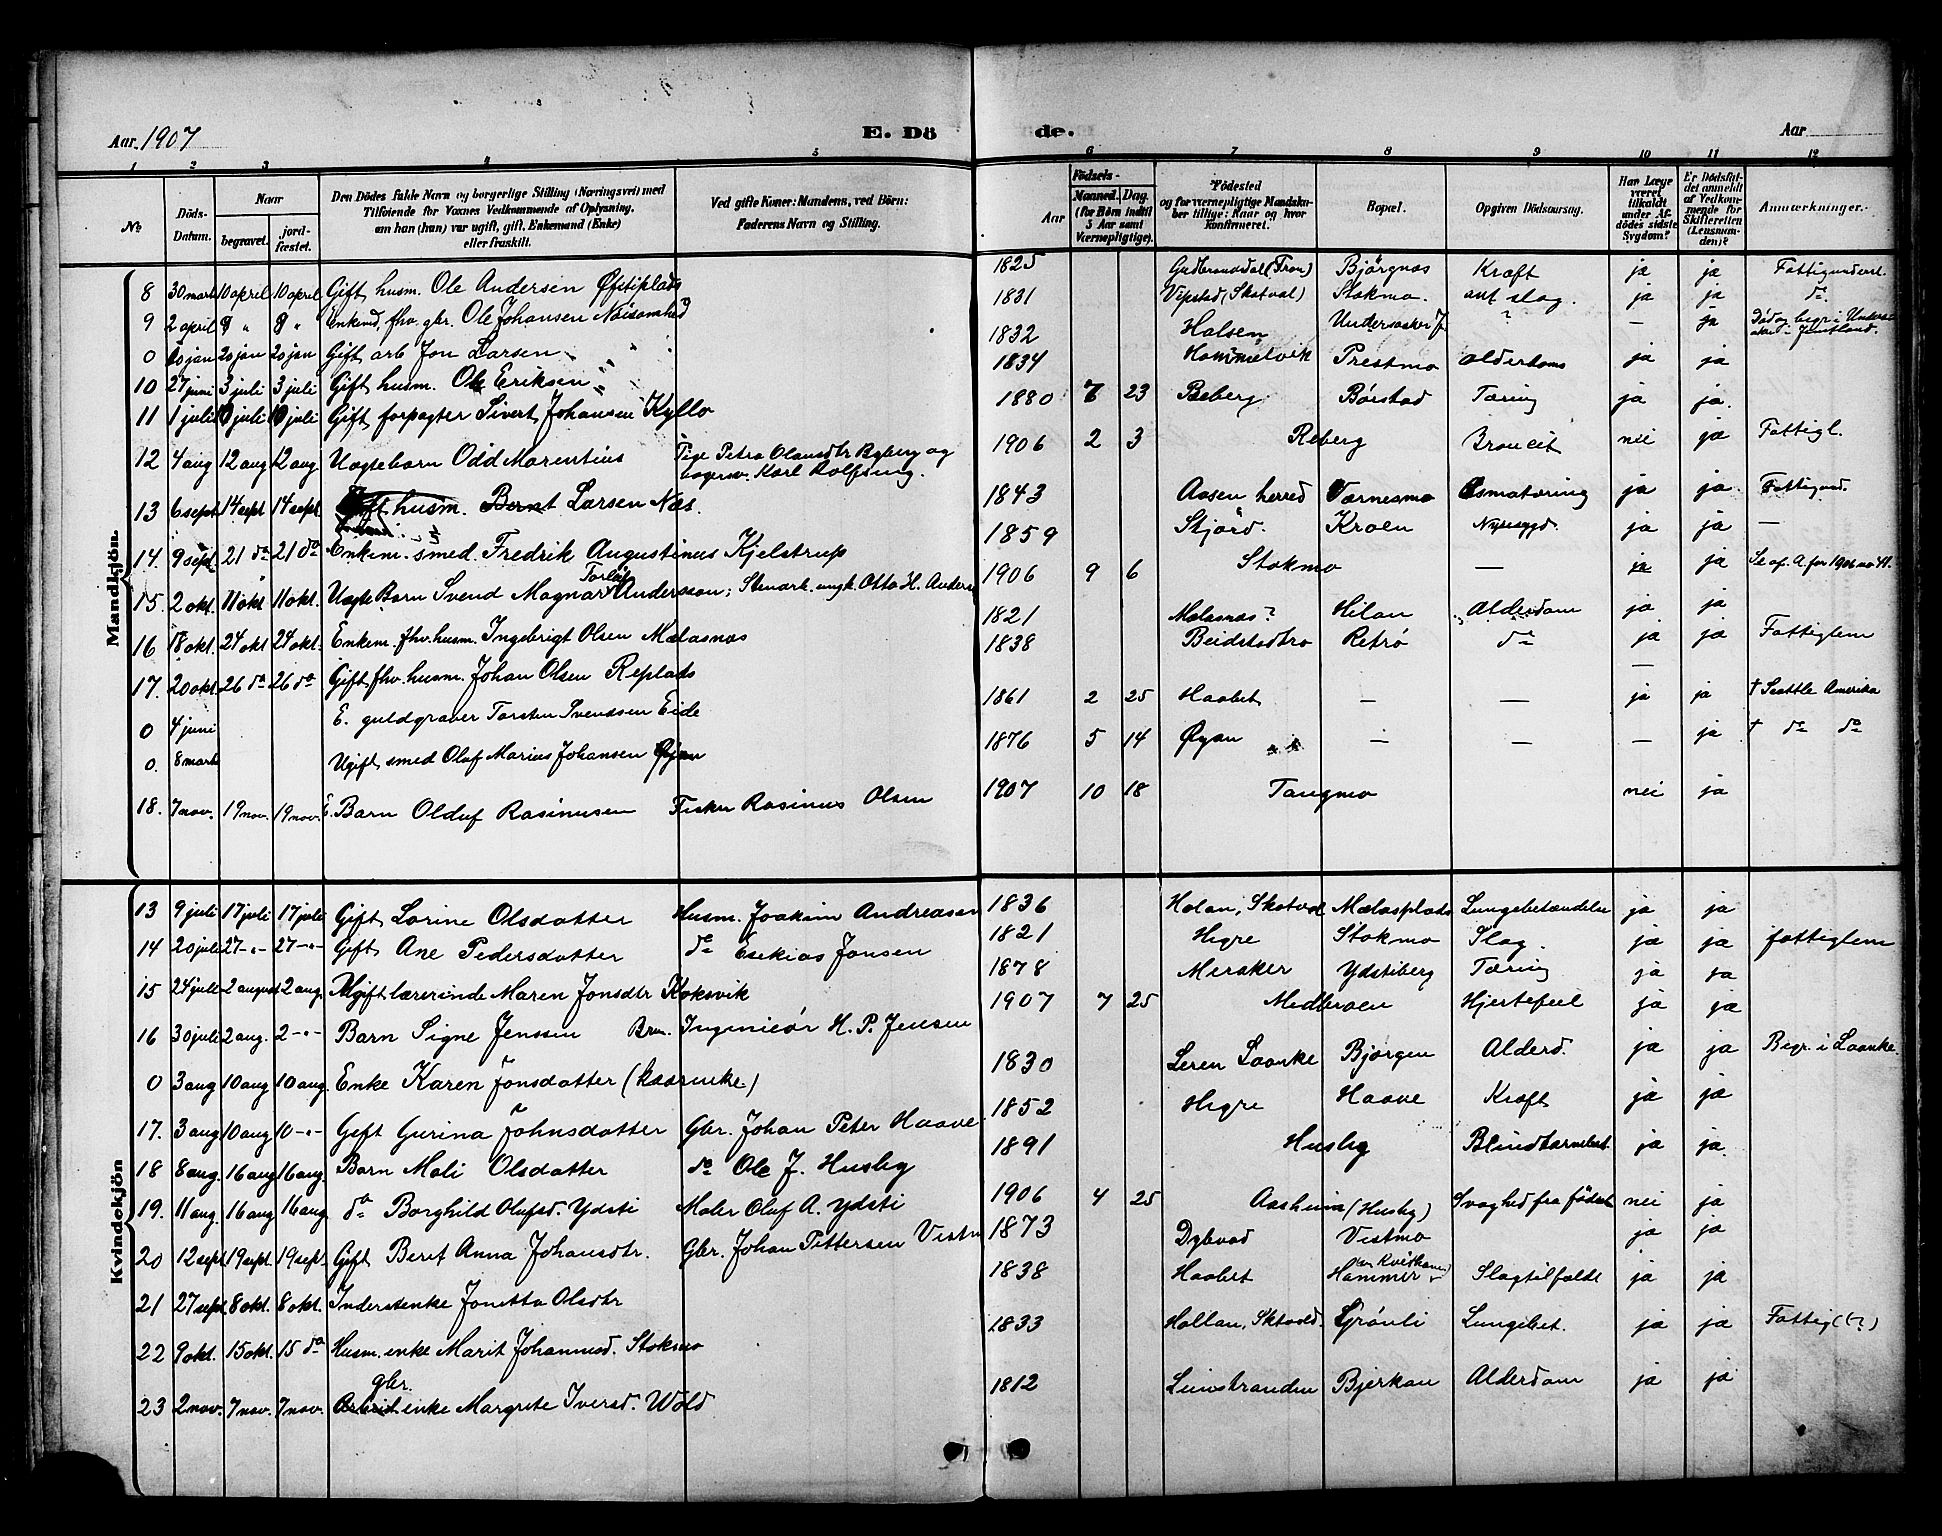 Aar. 1907
E. Dö de.
Aar
1 2 3 4 5 6 7 8 9 10 11 12
No
Döds-Datum.
Naar
begravet.
jordfæstet.
Den Dödes fulde Navn og borgerlige Stilling (Næringsvei) med
Tilföiende for Voxnes Vedkommende af Oplysning,
om han (hun) var ugift, gift, Enkemand (Enke)
eller fraskilt.
Ved gifte Koner: Mandens, ved Börn:
Faderens Navn og Stilling.
Födsels-
Aar
Maaned. Dag.
(for Börn indtil
5 Aar samt
Værnepligtige).
Födested
og for værnepligtige Mandskaber tillige: Naar og hvor
konfirmeret.
Bopæl.
Opgiven Dödsaarsag.
Har Læge
været
tilkaldt
under Afdödes sidste
Sygdom?
Er Dödsfaldet anmeldt
af Vedkommende for
Skifteretten
(Lensmanden)?
Anmærkninger.
Mandkjön.
8 30 mars 10 april 10 april Gift husm. Ole Andersen Øfstiplads 1825 Gudbrandsdal (Fron) Björgnas Kræft ja ja Fattigunderst.
9 2 april 9 " 9 " Enkemd. fhv. gbr. Ole Johansen Nøisomhed 1831 Vipstad (Skatval) Stokmo. ant slag. ja ja do.
0 10 jan 20 jan 20 jan Gift arb Jon Larsen 1832 Halsen Undersaker J. ? — ja Död og begr. i Undersaker i Jemtland.
10 27 juni 3 juli 3 juli Gift husm. Ole Eriksen 1834 Hommelvik Prestmo alderdoms ja ja
11 1 juli 10 juli 10 juli Gift forpagter Sivert Johansen Kyllo 1880 7 23 Reberg Børstad Tæring ja ja.
12 4 aug 12 aug 12 aug Uægte barn Odd Marentius Pige Petra Olausdtr Ryberg og
bagersv. Karl Rolfseng. 1906 2 3 Reberg Broncit nei ja Fattigl.
13 6 sept 14 sept 14 sept husm. Bernt Larsen Næs. 1843 Aasen herred Værnesmo Osmatæring ja ja Fattigund.
14. 9 sept 21 do 21 do Enkem. smed Fredrik Augustinus Kjelstrup 1859 Stjørd. Kroen Nyresygd. ja ja —
15. 2 okt. 11 okt 11 okt. Uægte Barn Svend Magnar Torleif Anderssen; Stenarb. ungk. Otto H. Anders 1906 9 6 Stokmo — ja ja Se af. A for 1906 no 41.
16 18 okt. 24 okt 24 okt. Enkem. fhv. husm. Ingebrigt Olsen Mælasnæs 1821 Mælasnæs? Hilan Alderdom ja ja
17. 20 okt. 26 do 26 do Gift fhv. husm. Johan Olsen Replads 1838 Beidstadbro Retrø do ja ja Fattiglem
0 4 juni E. guldgraver Torsten Svendsen Eide 1861 2 25 Haabet — — ja ja † Seattle Amerika
0. 8 mars Ugift smed Oluf Marius Johansen Øyan 1876 5 14 Øyan — — — ja † do do
18. 7 nov. 19 nov. 19 nov. E. Barn Olduf Rasinusen Fisker Rasinus Olsen 1907 10 18 Tangmo nei ja
Kvindekjön
13 9 juli 17 juli 17 juli Gift Lorine Olsdatter Husm. Joakim Andreasen 1836 Holan, Skatval Mælasplads Lungebetændelse ja ja
14 20 juli 27 -"- 27 -"- Gift Ane Pedersdatter do Esekias Jonsen 1821 Hegre Stokmo Slag. ja ja fattiglem
15 24 juli 2 august 2 aug. Ugift lærerinde Maren Jonsdtr Koksvik 1878 Meraker Ydstiberg Tæring ja ja
16 30 juli 2 aug. 2 -"- Barn Signe Jenssen Brn. Ingeniør H. P. Jensen 1907 7 25 Medbroen Hjertefeil ja ja
0 3 aug 10 aug 10 aug. Enke Karen Jonsdatter 1830 Leren Laanke Bjørgen Alderd. ja ja Begr. i Laanke.
17. 3 aug 10 aug 10 -"- Gift Gurina Johnsdatter Gbr. Johan Peter Haave 1852 Hegre Haave Kræft ja ja
18 8 aug. 16 aug 16 aug. Barn Mali Olsdatter do Ole J. Husby 1891 Husby Blindtarmsbet. ja ja.
19. 11 aug. 16 aug 16 aug do Borghild Olufsd. Ydsti Maler Oluf A. Ydsti 1906 4 25 Aasheim (Husby) Svaghed fra födsel nei ja
20 12 sept 19 sept. 19 sept. Gift Berit Anna Johansdtr. Gbr. Johan Pettersen Vistm 1873 Dybvad Vistmo ja ja
21 27 sept 8 okt. 8 okt. Inderstenke Jonetta Olsdtr 1838 Haabet Hammer Slagtilfælde ja ja
22 9 okt. 15 okt. 15 do Husm. enke Marit Johannesd. Stokmo 1833 Hollan, Skatvold. Grønli Lungebet. ja ja Fattig (?)
23 2 nov. 7 nov. 7 nov. gbr. enke Margrete Iversd. Wold 1812 Leinstranden Bjerkan Alderdom ja ja